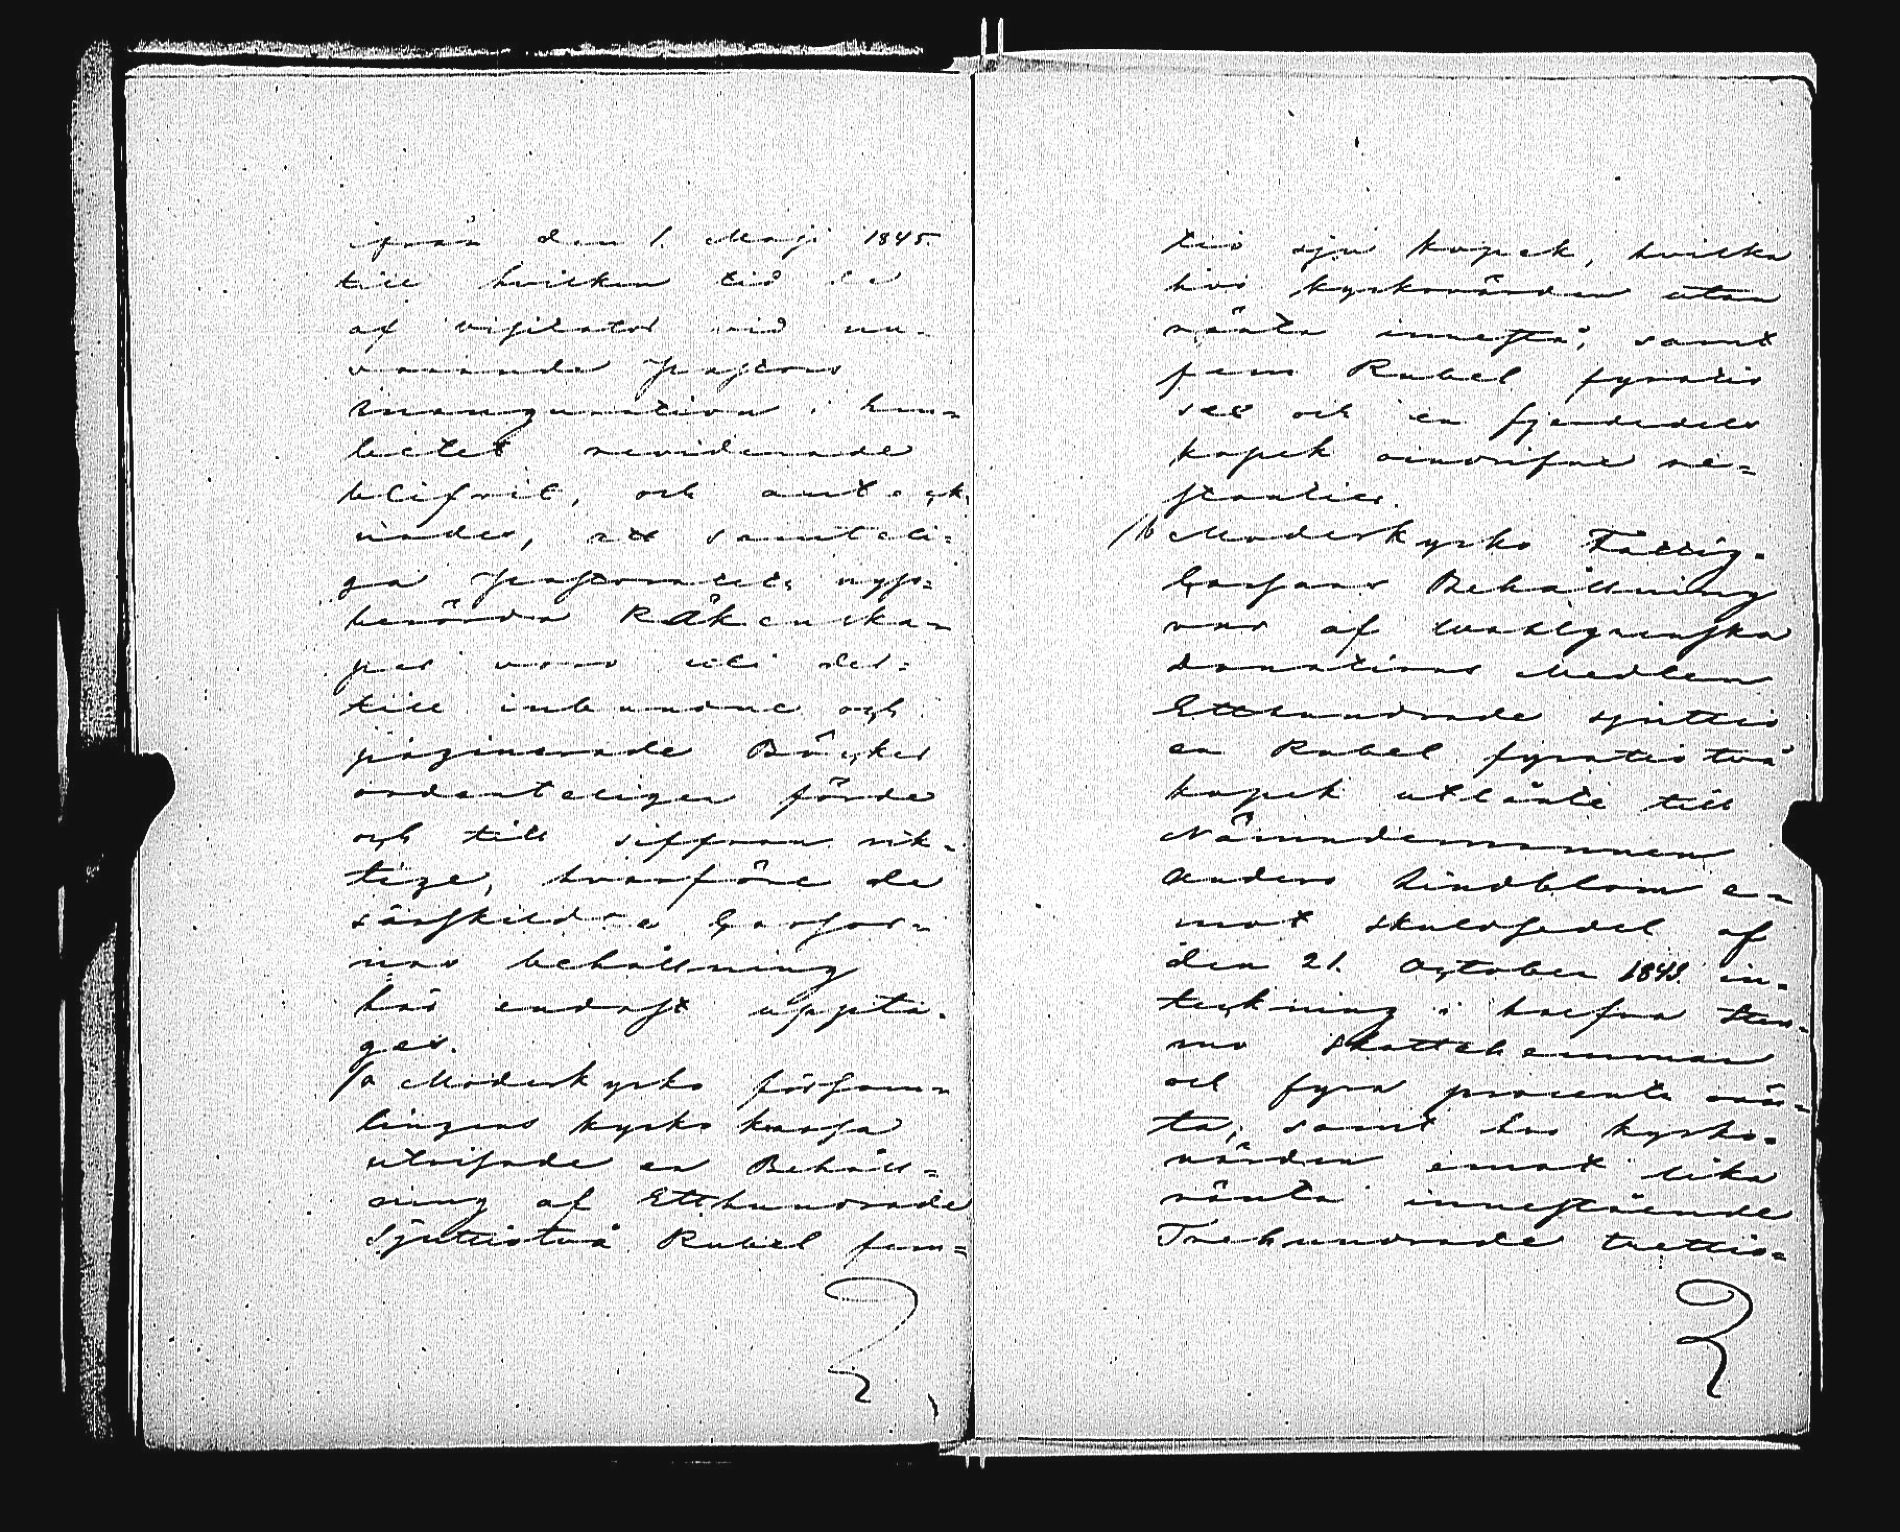 ifrån den 1. Maji 1845.
till hvilken tid de
af vigilator vid nu-
varande Pastors
inauguration i hu-
letet reviderade
blifvit, och anteck-
nades, att samteli-
ga Pastoratets upp-
berörda Räkenska-
per voro uti der-
till inbundne och
paginerade Böcker
ordenteligen förde
och till siffran rik-
tige, hvarföre de
särskildte Cassor-
nas behållning
här endast uppta-
ges.
/a Moderkyrko försam-
lingens kyrko kassa
utvisade en Behåll-
ning af Etthundrade
Sjuttiotvå Rubel fem-
tio sju kopek, hvilka
hos kyrkovärden utan
ränta innestå; samt
fem Rubel fyratio
sex och en fjerdedels
kopek oindrifne re-
stantier.
/b Moderkyrko Fattig-
Cassans Behållning
var af
donations Medlen
Etthundrade sjuttio
en Rubel fyratio två
kopek utlånte till
Nämndemannen
Anders Lindblom e-
mot skuldsedel af
den 21. October 1843. in-
teckning i halfva
mo skattehemman
och fyra procents rän-
ta; samt hos kyrko-
värden emot lika
ränta innestående
Trehundrade trettio-